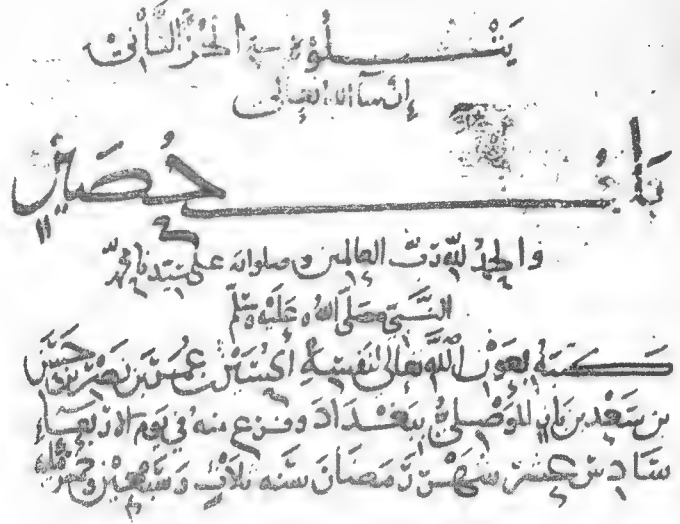 يتلوه في الجزء الثاني
إن شاء الله تعالى
باب حصين
والحمد لله رب العالمين وصلواته على سيدنا محمد
النبي صلى الله عليه وسلم
كتبه بعون الله تعالى لنفسه الحسين بن عمر بن نصر بن حسن
بن سعد بن باز الموصلي ببغداد وفرغ منه في يوم الاربعاء
سادس عشر شهر رمضان سنه ثلاث وسبعين وخمس